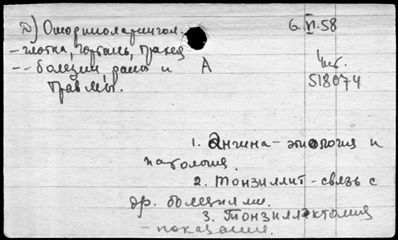 D) Оториноларингол.
6.VI.58
- глотка, гортань, трахея
-- болезни, раны и
травмы.
A
Инт.
518074
1. Ангина - этиология и
патология.
2. Тонзиллит - связь с
др. болезнями.
3. Тонзиллэктомия
- показания.